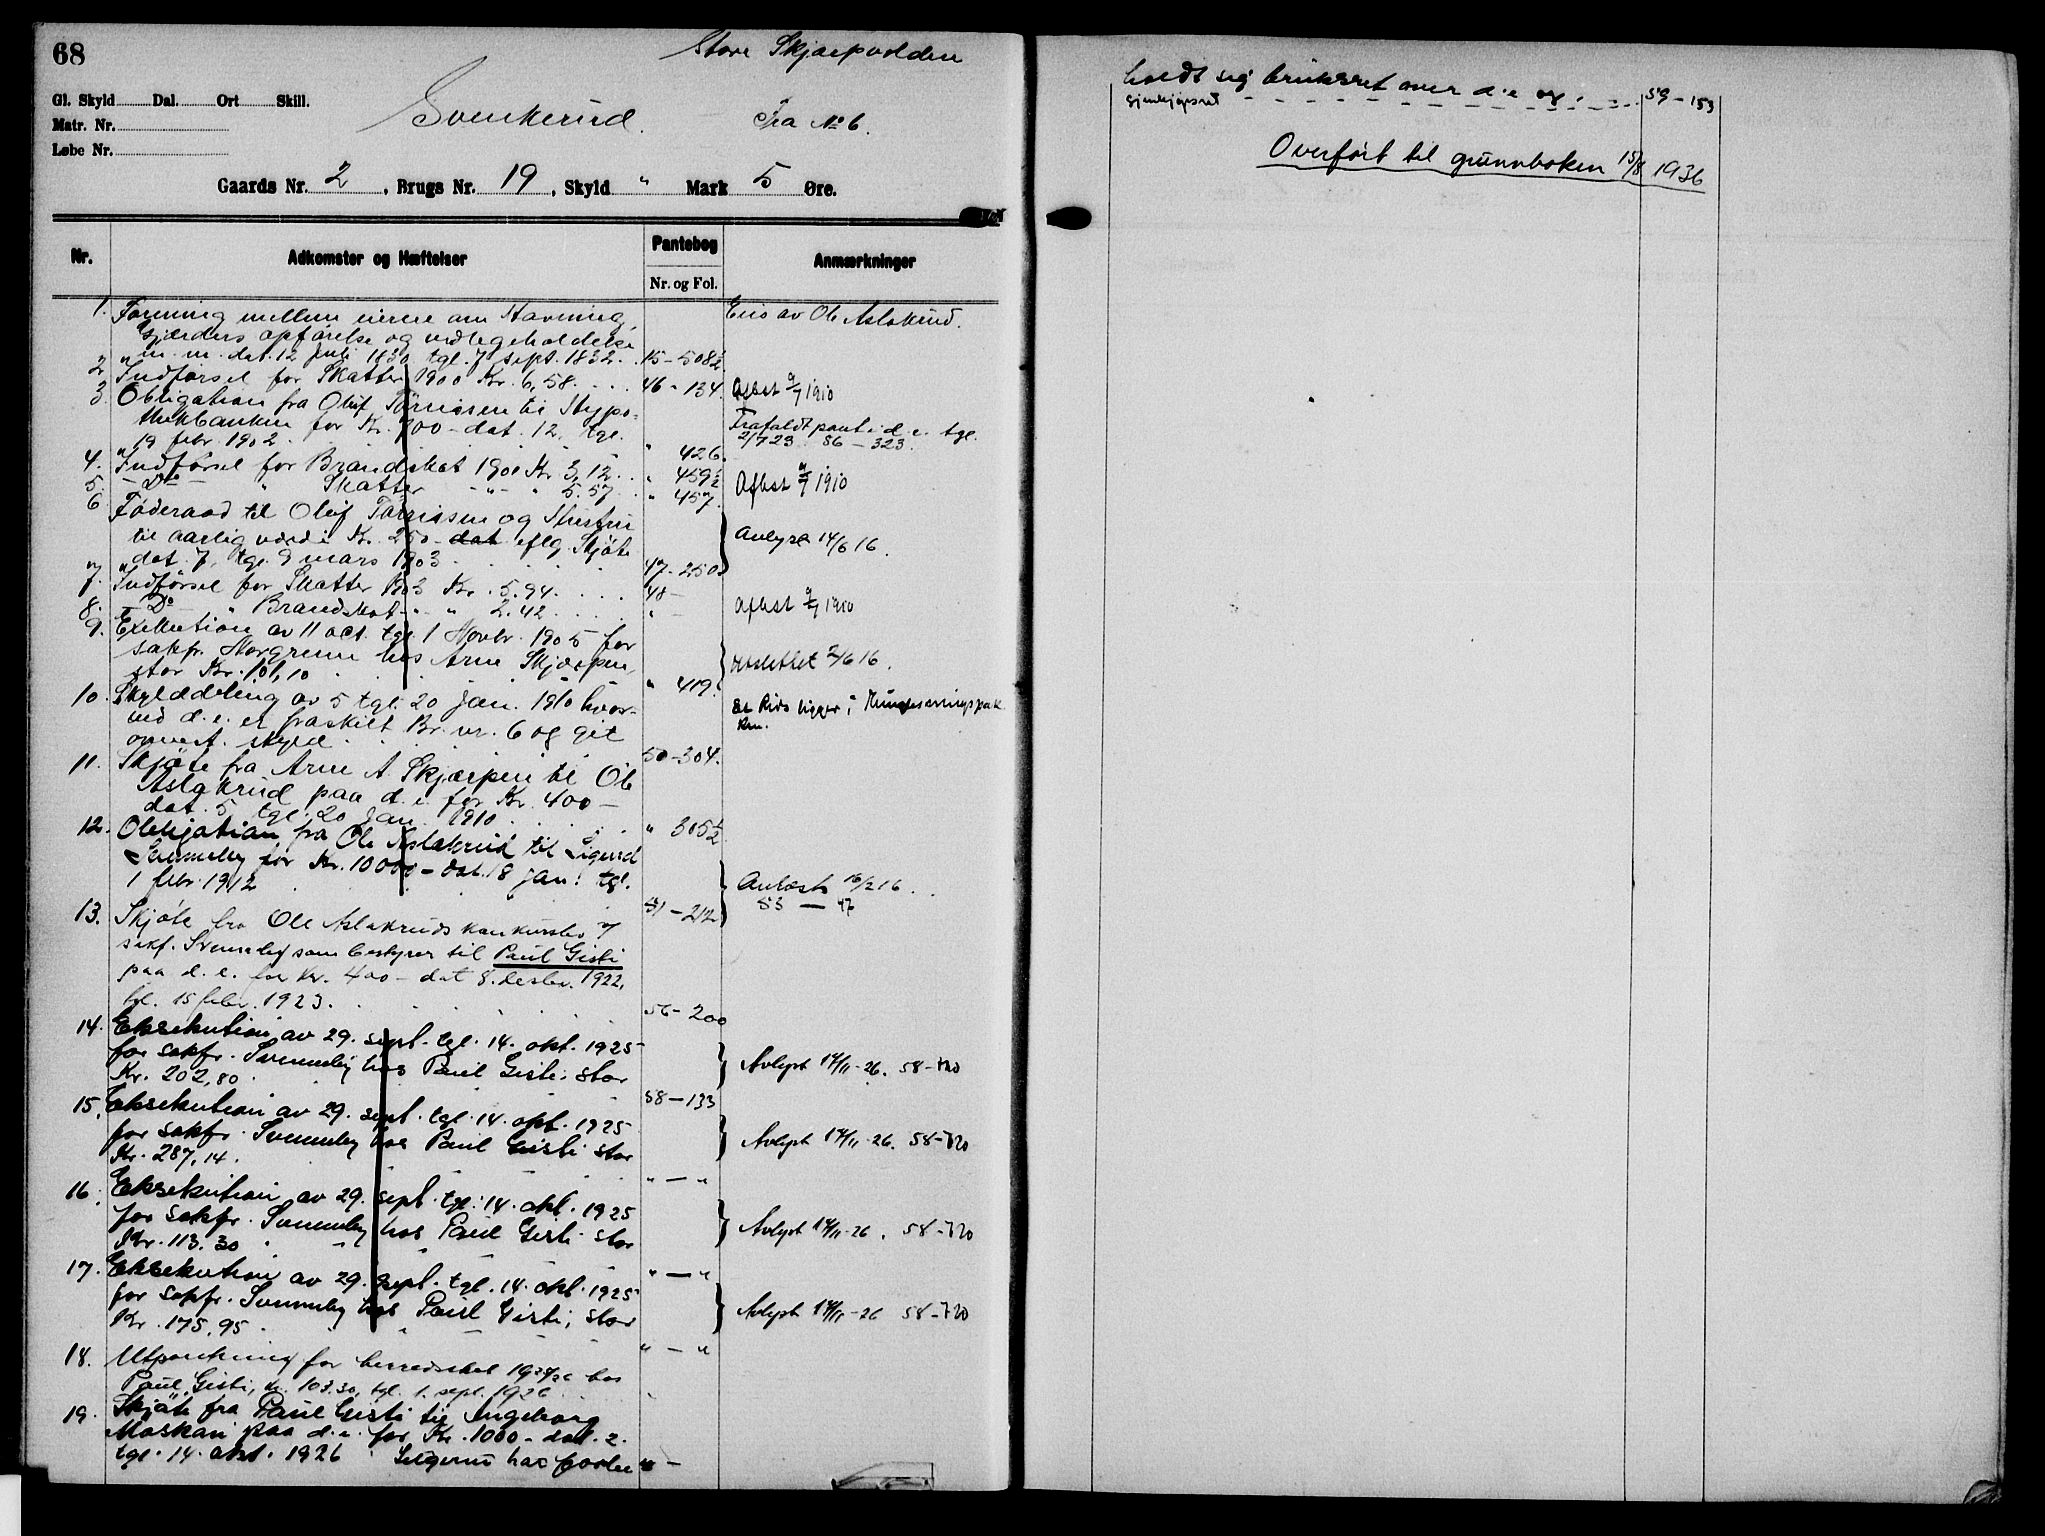 68
Store Skjærpvolden
Gl. Skyld Dal. Ort Skill.
Matr. Nr.
Løbe Nr.
Svenkerud. Fra No 6.
Gaards Nr. 2, Brugs Nr. 19, Skyld " Mark 5 Øre.
Nr. Adkomster og Hæftelser Pantebog Anmærkninger
Nr. og Fol.
1. Forening mellem eierne om Havning, Eies av Ole Aslakrud.
Gjærders opførelse og vedlegeholdelse
m. m. dat. 12 Juli 1830 tgl. 7 sept. 1832. 15-508½
2 Indførsel for Skatter 1900 Kr. 6,58. 46-134. Aflæst 9/7 1910
3. Obligation fra Oluf Tørrissen til Hypo-
thekbanken for Kr. 700- dat. 12, tgl. Frafaldt pant i d. e. tgl.
19 febr 1902. " 426. 2/7 23. 56-323.
4. Indførsel for Brandskat 1901 Kr 3,12. " 459½
5. - Do - " Skatter - " - " 5.57. " 457. Aflæst 9/7 1910
6 Føderaad til Oluf Tørrissen og Hustru
til aarlig værdi Kr. 250- dat eflg. Skjøte Avlyse 14/6 16.
dat. 7, tgl. 9 mars 1903 47-250
7. Indførsel for Skatter 1903 Kr. 5.94. 48-
8. - Do - " Brandskat - " - " 2.42 " - Aflæst 9/7 1910
9. Exekution av 11 oct. tgl. 1 Novbr. 1905 for
sakfr. Horgrenn hos Arne Skjærpen, utslettet 2/6 16.
stor Kr. 101,10 " 419.
10. Skylddeling av 5 tgl. 20 jan. 1910 hvor-
ved d. e. er fraskilt Br. nr. 6 og git
opmst. skyld 50-304.
11. Skjøte fra Arne A. Skjærpen til Ole
Aslakrud paa d. e. for Kr. 400-
dat. 5 tgl. 20 jan. 1910 " 305½
12. Obligation fra Ole Aslakrud til Sigurd
Svenneby for Kr. 10000- dat. 18 jan. tgl.
1 febr. 1912 51-212 Avlæst 16/2 16. 53-47
13. Skjøte fra Ole Aslakruds konkursbo v/
sakf. Svenneby som bestyrer til Paul Gisti
paa d. e. for kr. 400- dat 8. desbr. 1922,
tgl. 15 febr. 1923. 56-200
14. Eksekution av 29. sept. tgl. 14. okt. 1925
for sakfr. Svenneby hos Paul Gisti, stor Avlyst 14/11-26. 58-720
Kr. 202,80. 58-133
15. Eksekution av 29. sept. tgl. 14. okt. 1925
for sakfr. Svenneby hos Paul Gisti stor Avlyst 14/11-26. 58-720
Kr. 287,14. " - "
16. Eksekution av 29. sept. tgl. 14. okt. 1925
for sakfr. Svenneby hos Paul Gisti stor Avlyst 14/11-26. 58-720
Kr. 113.30 " - "
17. Eksekution av 29. sept. tgl. 14. okt. 1925
for sakfr. Svenneby hos Paul Gisti, stor Avlyst 14/11-26 58-720
Kr. 175,95. " - "
18. Utpantning for herredsskat 1925/26 hos
Paul Gisti, kr. 103.30, tgl. 1. sept. 1926.
19. Skjøte fra Paul Gisti til Ingeborg
Moskau paa d. e. for Kr. 1000- dat. 2.
tgl. 14. okt. 1926 Selgeren har forbe- " -
holdt sig bruksret over d. e. og
gjenkjøpsret 59-153
Overført til grunnboken 15/8 1936